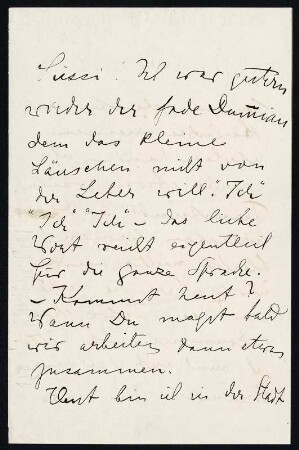 "Sissi". Ich war gestern
wieder der fade Damian
dem das kleine
Läuschen nicht von
der Leber will. "Ich"
"Ich" "Ich" – das liebe
Wort reicht eigentlich
für die ganze Sprache.
– Kommst heut?
Wann Du magst bald
wir arbeiten dann etwas
zusammen.
bin ich in der Stadt